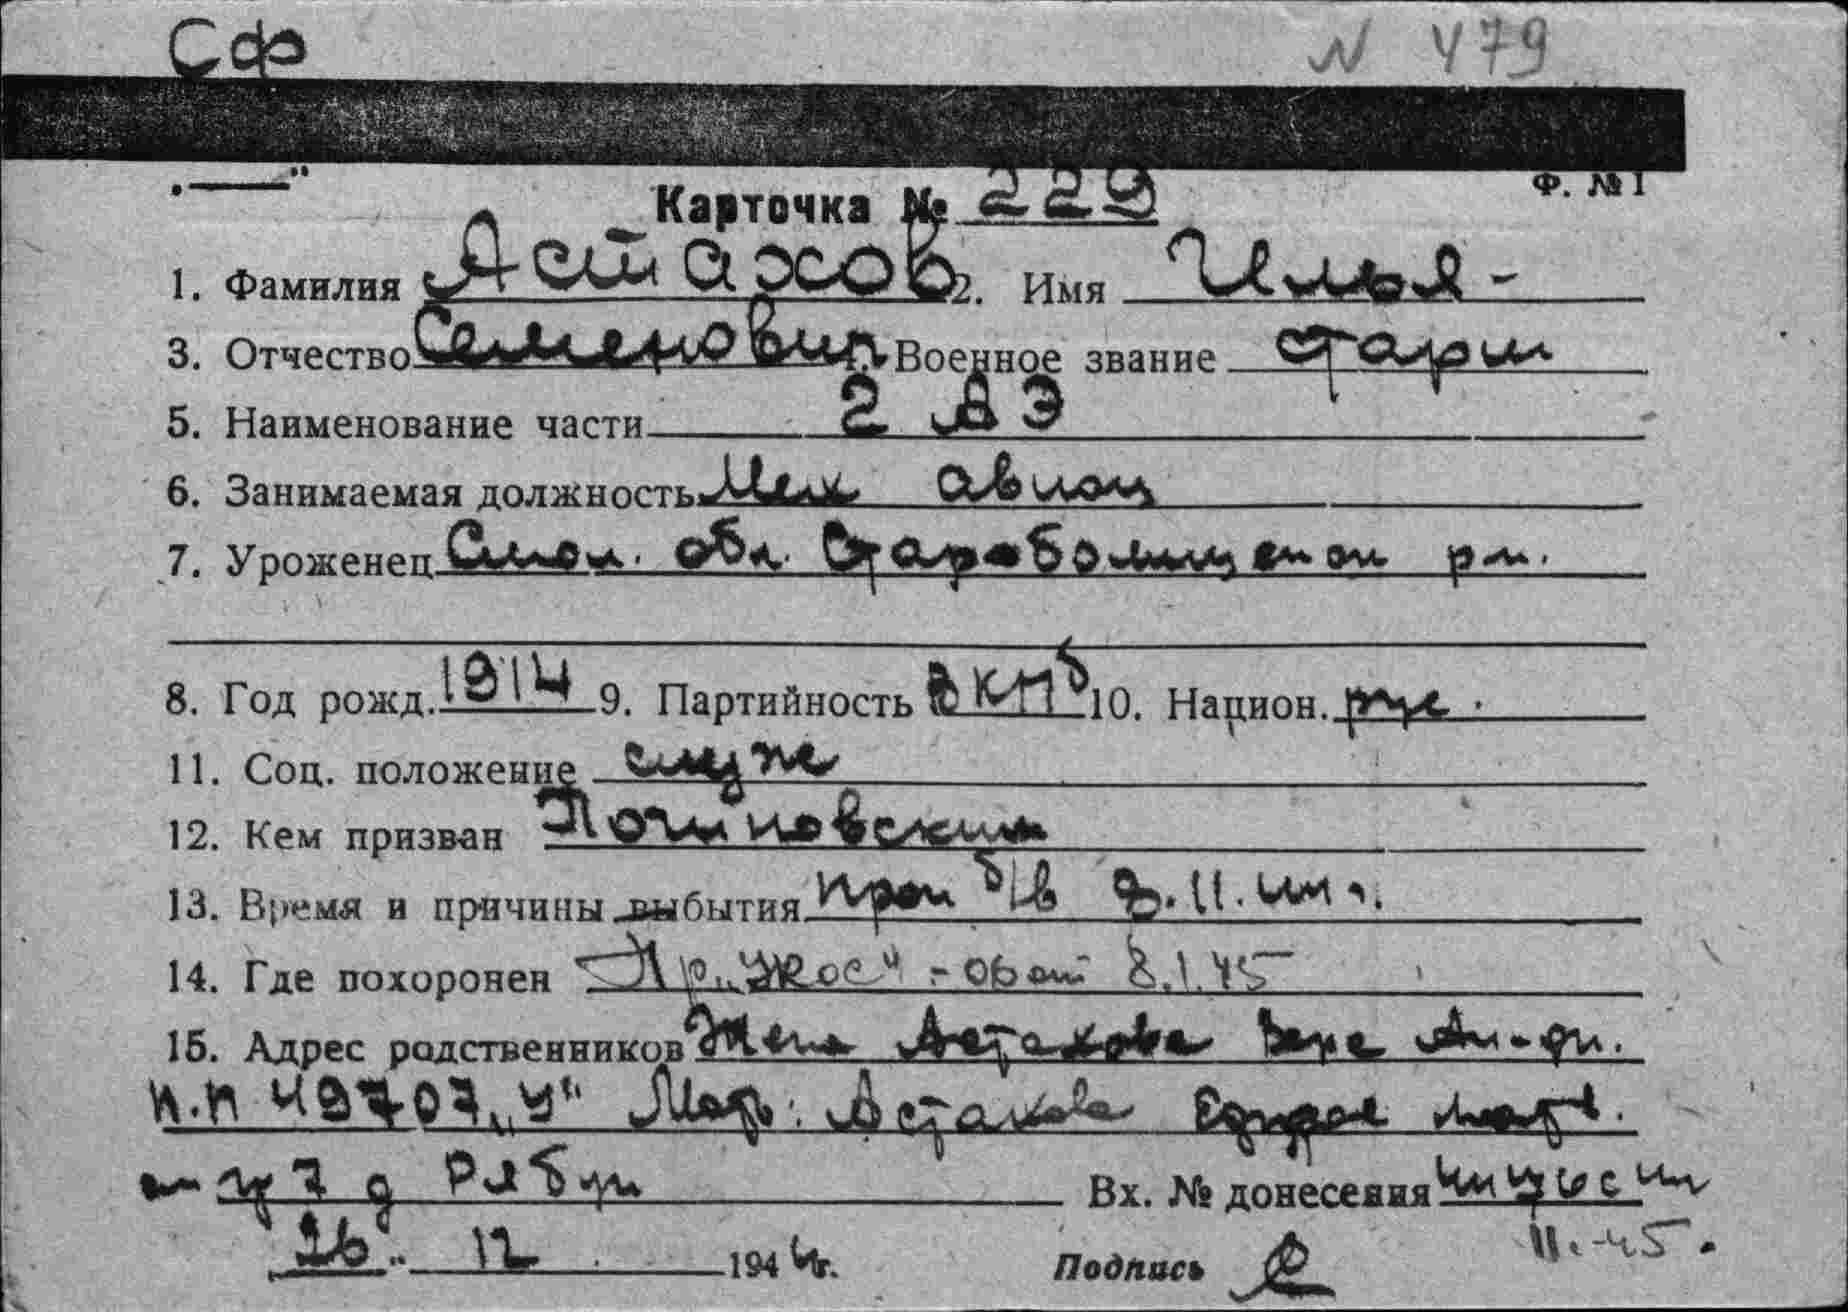 Сф N 479
Ф. №1
Карточка № 229
1. Фамилия Астахов 2. Имя Илья -
3. Отчество Семенович Военное звание старш
5. Наименование части 2 АЭ
6. Занимаемая должность Мех авиац
7. Уроженец Смол. обл. рн.
8. Год рожд. 1914 9. Партийность ВКПб 10. Национ. рус.
11. Соц. положение служ
12. Кем призван Починовским
13. Время и причины выбытия проп б/в 8.11.
14. Где похоронен 8.1.45
15. Адрес родственников Жена Астахова Вера
п.п 49707 „У" Мать: Астахова
д Рябцы Вх. № донесения
26 " 12 1944г. Подпись 11.-45.